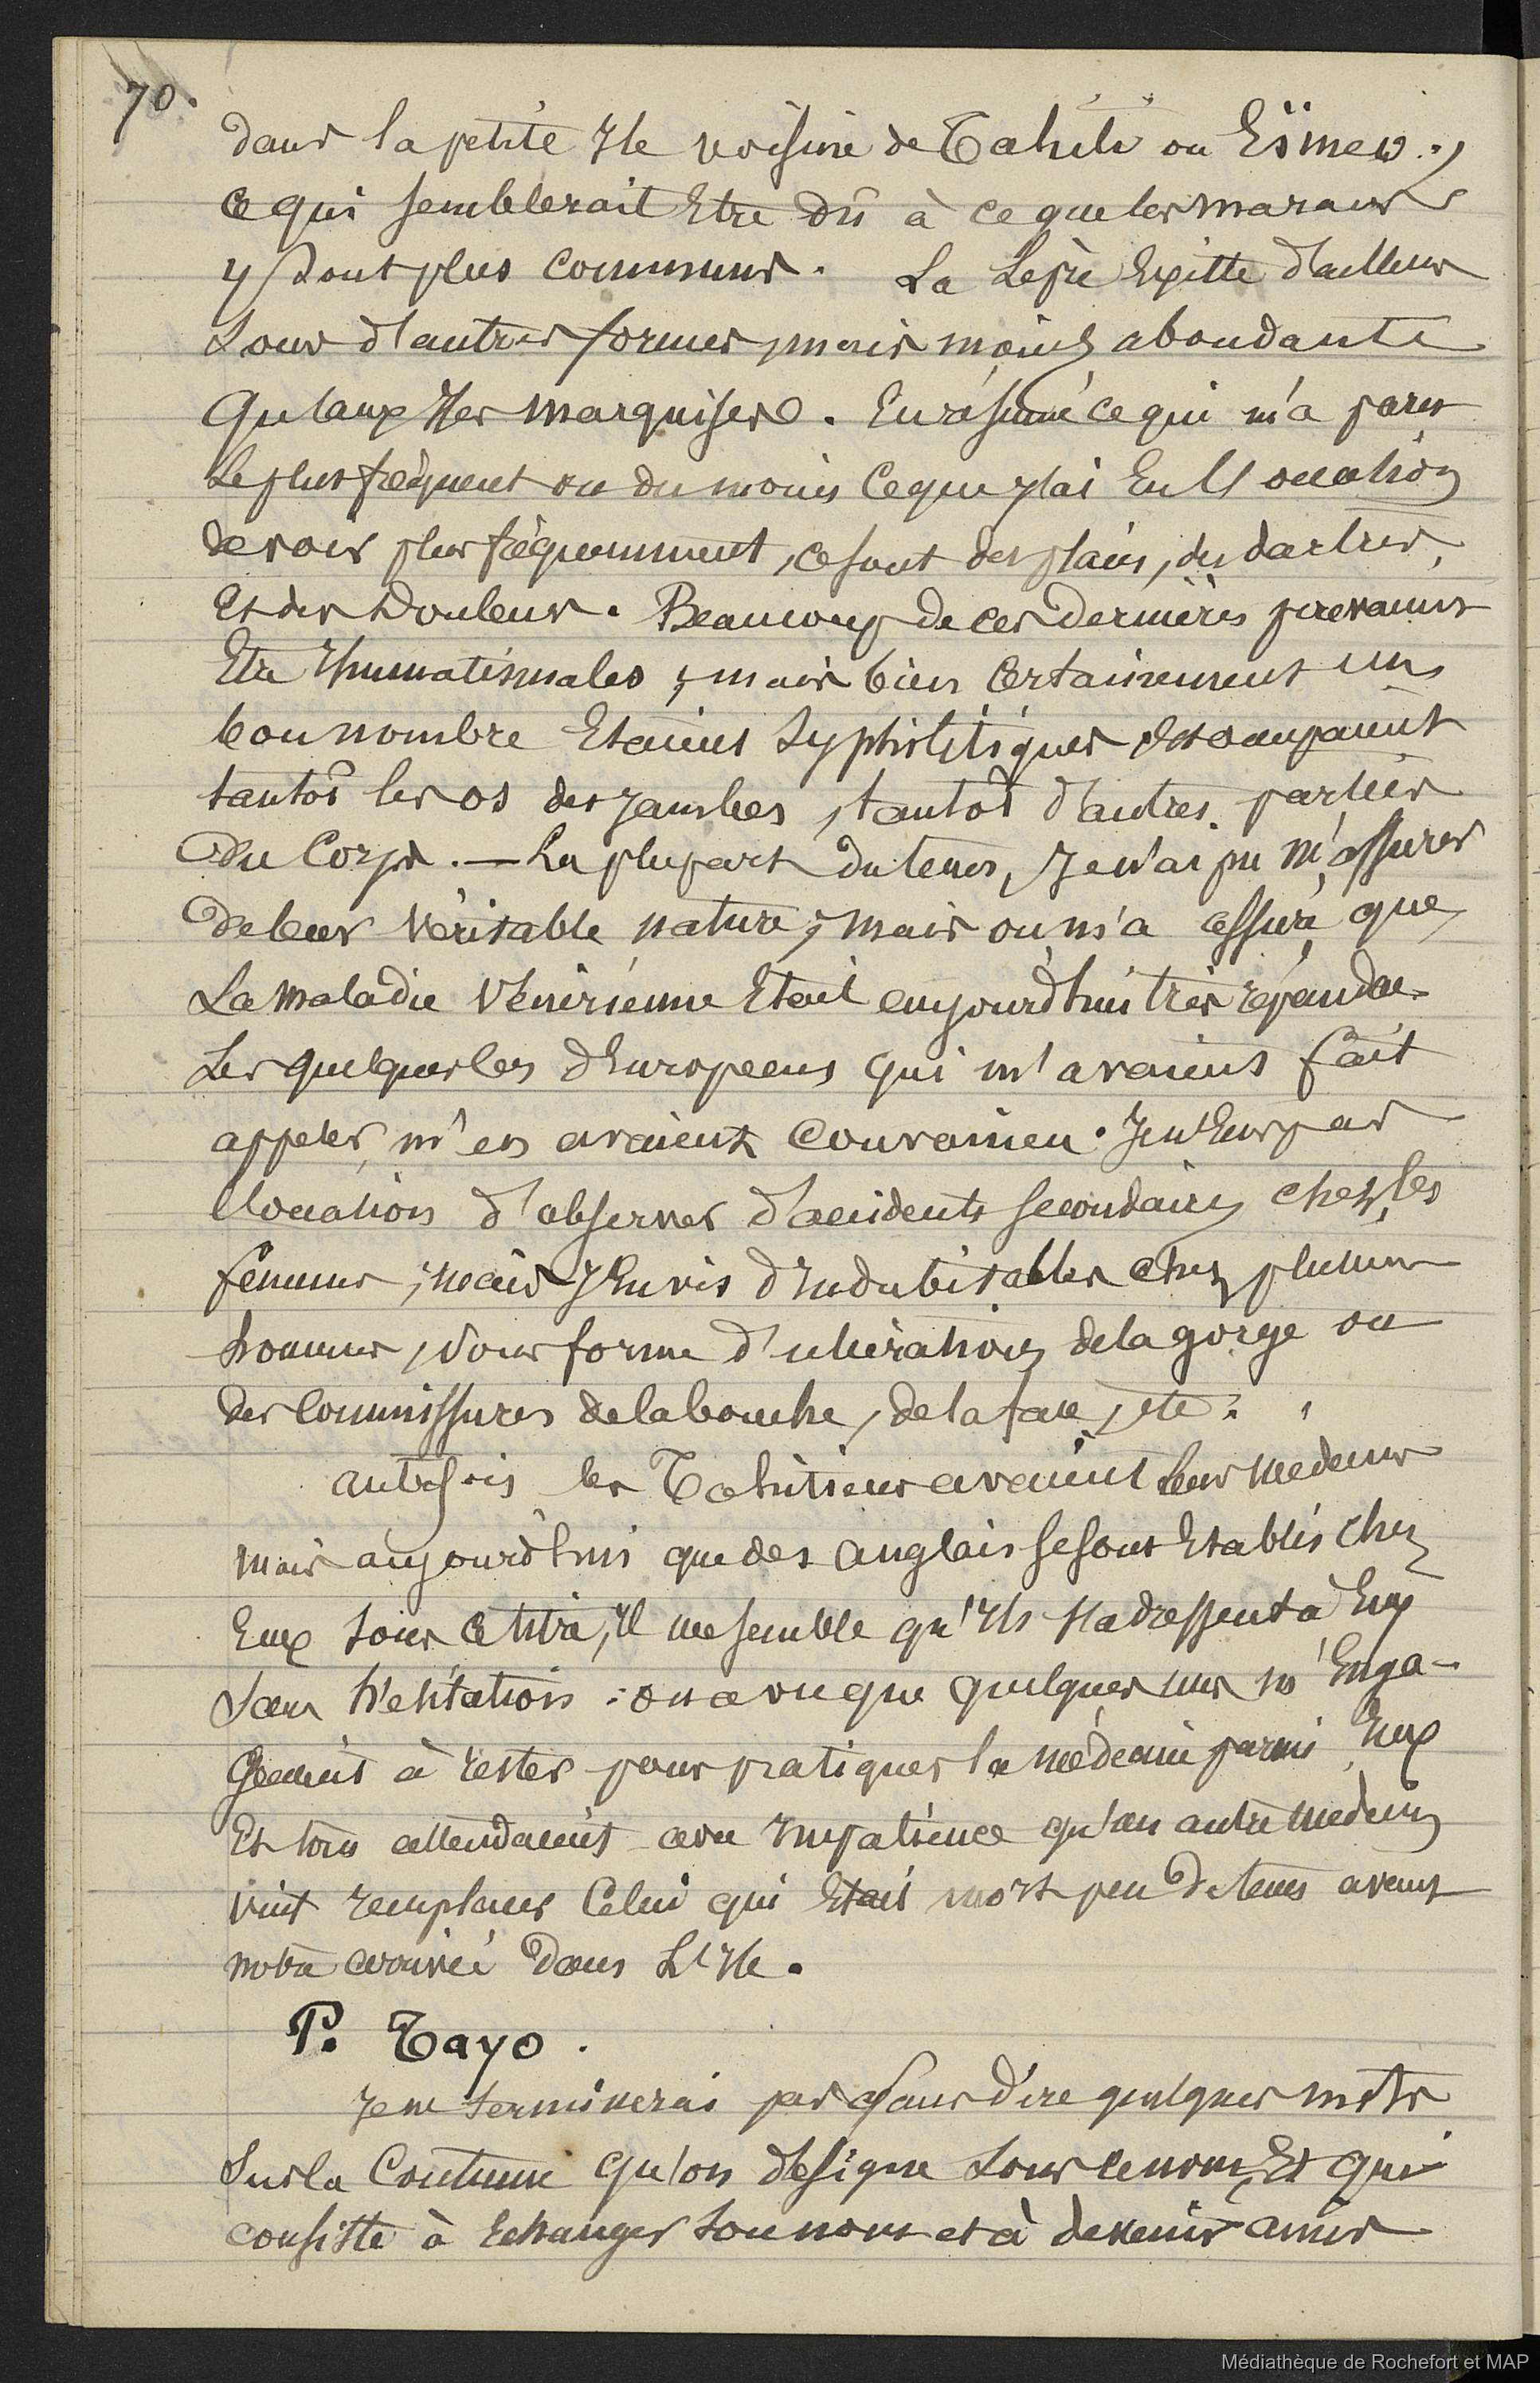 70.
dans la petite Ile voisine de Tahiti ou Eïmeo.,
ce qui semblerait Etre dû à ce que les marais
y sont plus communs. La Lèpre Existe d'ailleurs
sous d'autres formes, mais moins abondante
qu'aux Iles marquises. En résumé ce qui m'a paru
le plus fréquent ou du moins ce que j'ai Eu l'occasion
de voir plus fréquemment, ce sont des plaies, des dartres,
Et des Douleurs. Beaucoup de ces dernières
Etre Rhumatismales ; mais bien certainement un
bon nombre Etaient Syphilitiques et occupaient
tantôt les os des jambes, tantôt d'autres parties
du Corps. — La plupart du tems, je n'ai pu m'assurer
de leur véritable nature ; mais on m'a assuré que
La maladie Vénérienne Etait aujourd'hui très répandue.
Les quelques d'Europeens qui m'avaient fait
appeler, m'en avaient convaincu. Je n'Eus pas
l'occasion d'observer d'accidents secondaires chez les
femmes ; mais j'En vis d'Indubitables chez plusieurs
hommes, sous forme d'ulcérations de la gorge ou
des commissures de la bouche, de la face, etc.
autrefois les Tahitiens avaient leurs medecins
mais aujourd'hui que des anglais se sont Etablis chez
Eux sous ce titre, Il me semble qu'Ils s'adressent à Eux
sans hésitation : on a vu que quelques uns m'Enga-
geaient à rester pour pratiquer la médecine parmi Eux
Et tous attendaient avec Impatience qu'un autre medecin
vint remplacer celui qui Etait mort peu de tems avant
notre arrivée dans L'Ile.
P. Tayo.
Je ne terminerai pas sans dire quelques mots
sur la Coutume qu'on désigne sous ce nom, Et qui
consiste à Echanger son nom et à devenir amis
Médiathèque de Rochefort et MAP